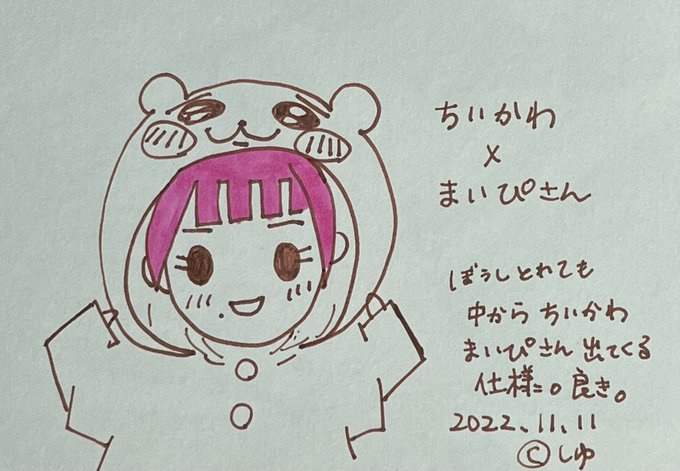 ちいかわ
×
まいぴさん
ぼうしとれても
中からちいかわ
まいぴさん出てくる
仕様に。良き。
2022.11.11
©しゅ